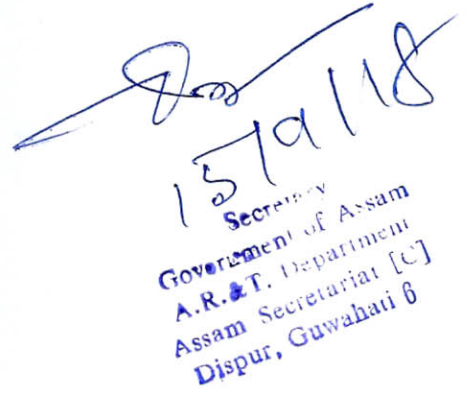 15/9/18
Secretary
Government of Assam
A.R.&T. Department
Assam Secretariat [C]
Dispur, Guwahati 6